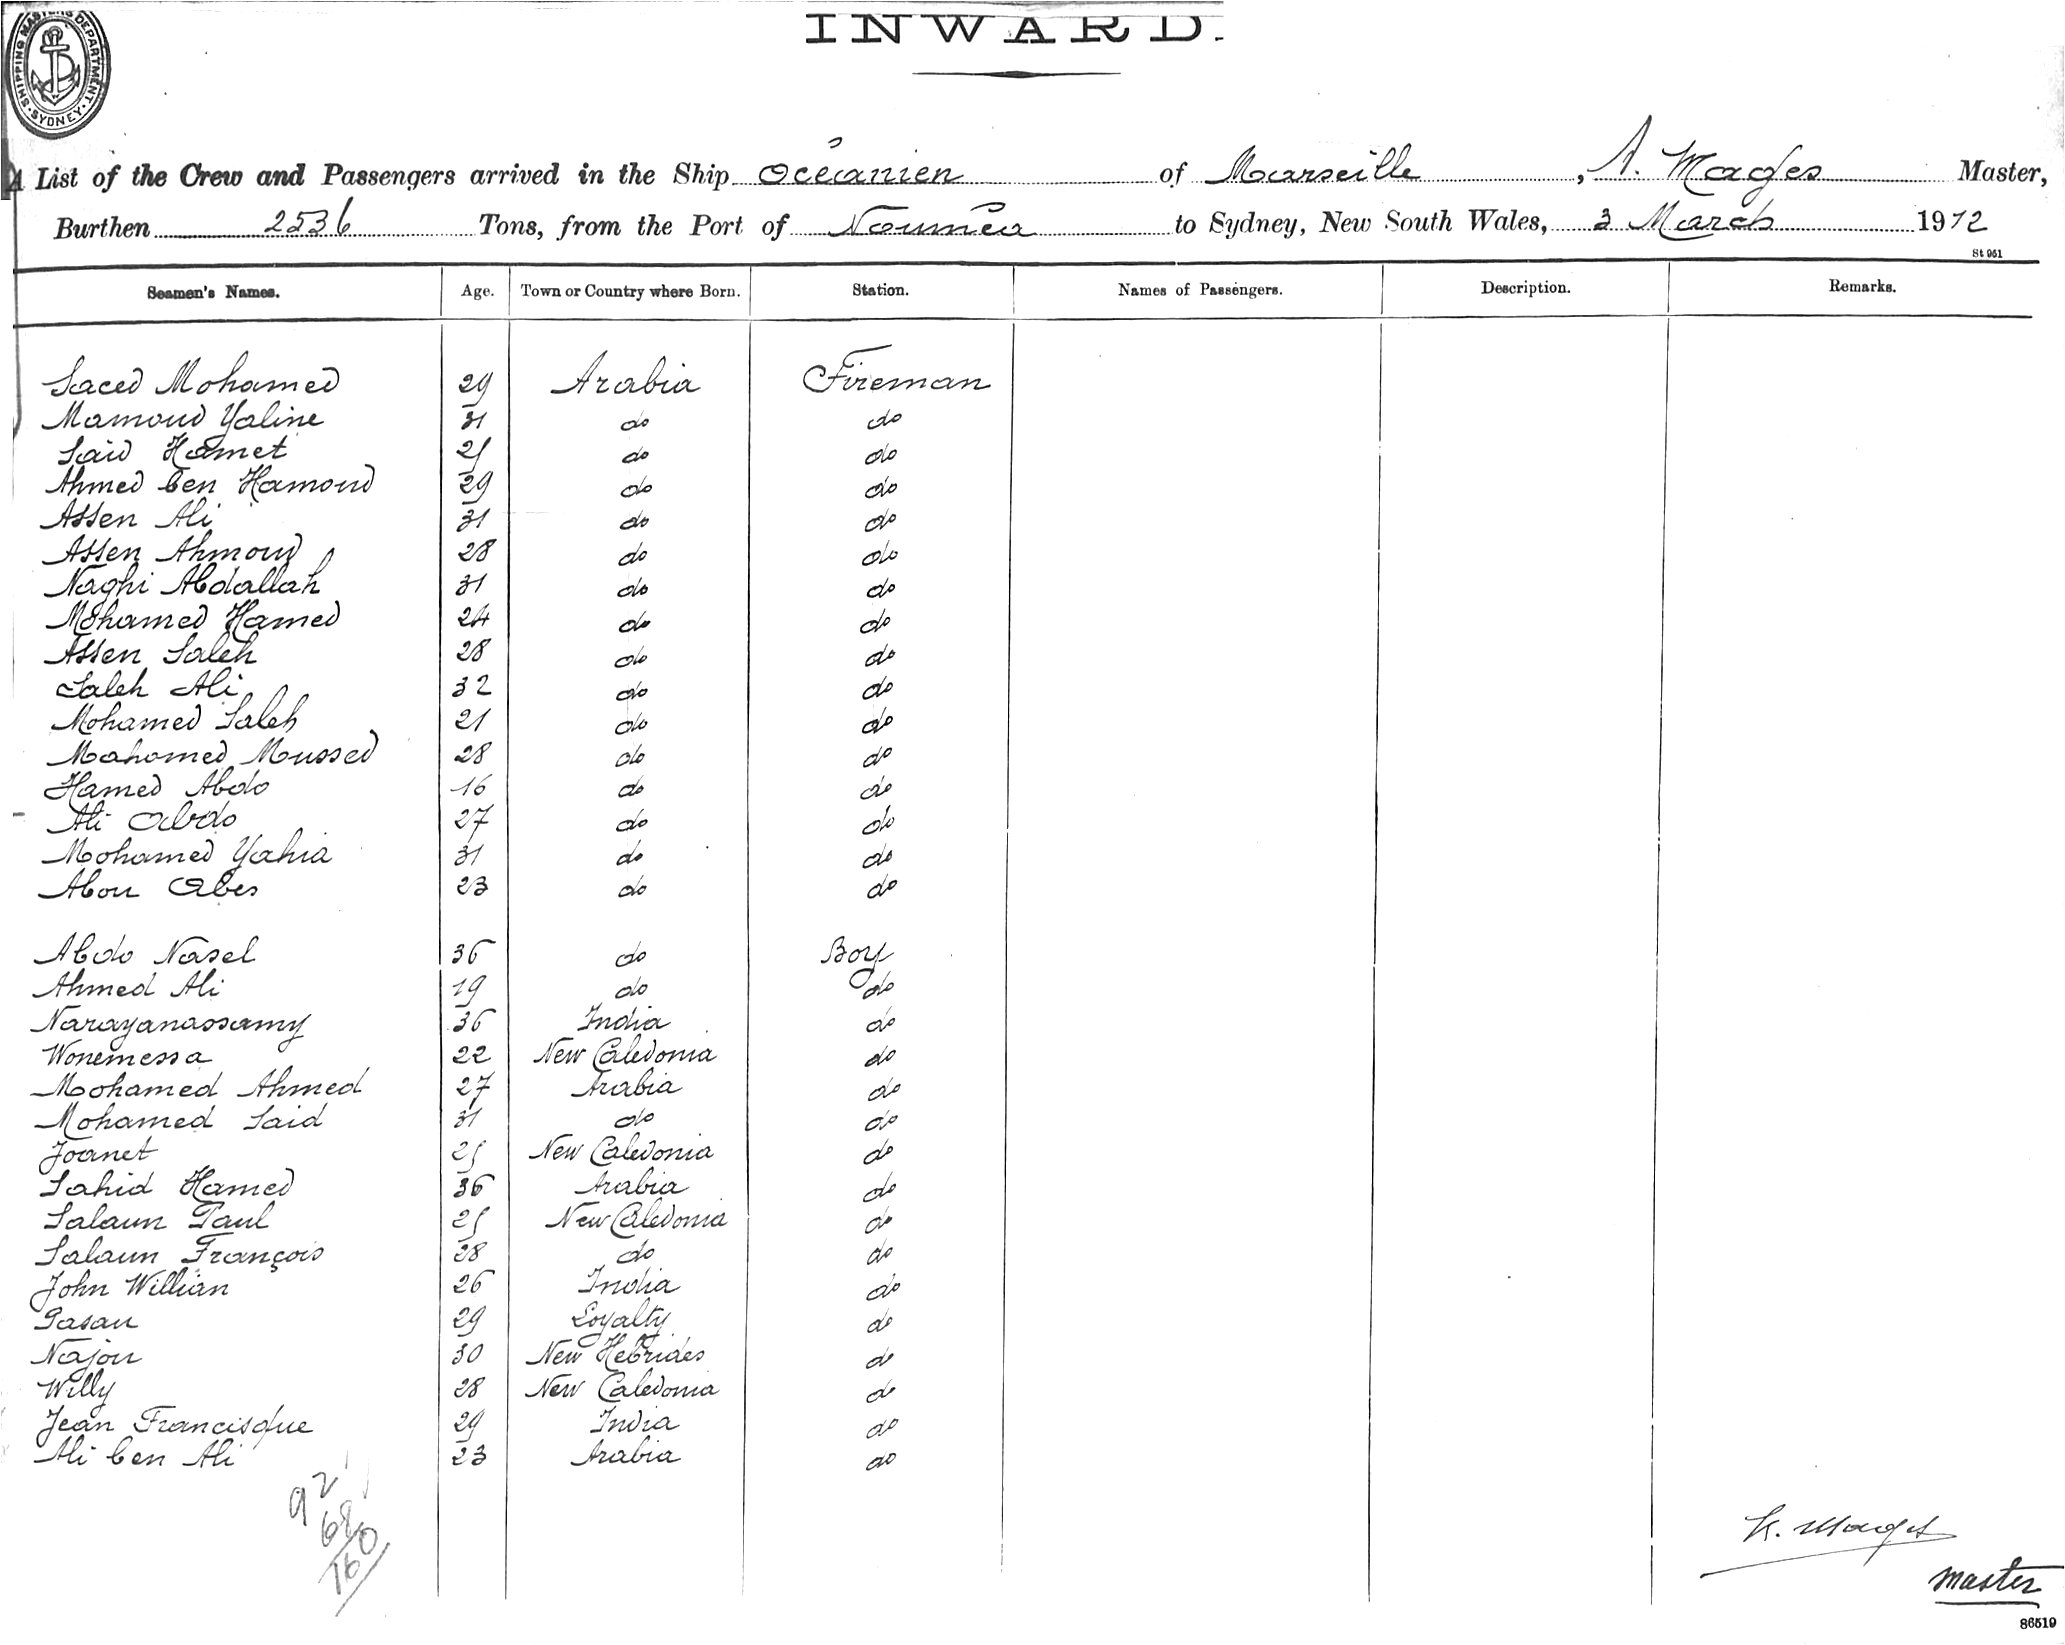 INWARD.
SHIPPING MASTERS DEPARTMENT. SYDNEY.
A List of the Crew and Passengers arrived in the Ship Océanien of Marseille, A. Mages Master,
Burthen 2536 Tons, from the Port of Nouméa to Sydney, New South Wales, 3 March 1912
St 961
Seamen's Names. Age. Town or Country where Born. Station. Names of Passengers. Description. Remarks.
Saced Mohamed 29 Arabia Fireman
Mamoud Yaline 31 do do
Said Hamet 25 do do
Ahmed ben Hamoud 29 do do
Assen Ali 31 do do
Assen Ahmoud 28 do do
Naghi Abdallah 31 do do
Mohamed Hamed 24 do do
Assen Saleh 28 do do
Saleh Ali 32 do do
Mohamed Saleh 21 do do
Mahomed Mussed 28 do do
Hamed Abdo 16 do do
Ali Abdo 27 do do
Mohamed Yahia 31 do do
Abou Abes 23 do do
Abdo Nasel 36 do Boy
Ahmed Ali 19 do do
Narayanassamy 36 India do
Wonemessa 22 New Caledonia do
Mohamed Ahmed 27 Arabia do
Mohamed Said 31 do do
Joanet 25 New Caledonia do
Sahid Hamed 36 Arabia do
Salaun Paul 25 New Caledonia do
Salaun François 28 do do
John Willian 26 India do
Pasau 29 Loyalty do
Najou 30 New Hebrides do
Willy 28 New Caledonia do
Jean Francisque 29 India do
Ali ben Ali 23 Arabia do
92
68
160
A. Mages
Master
86519